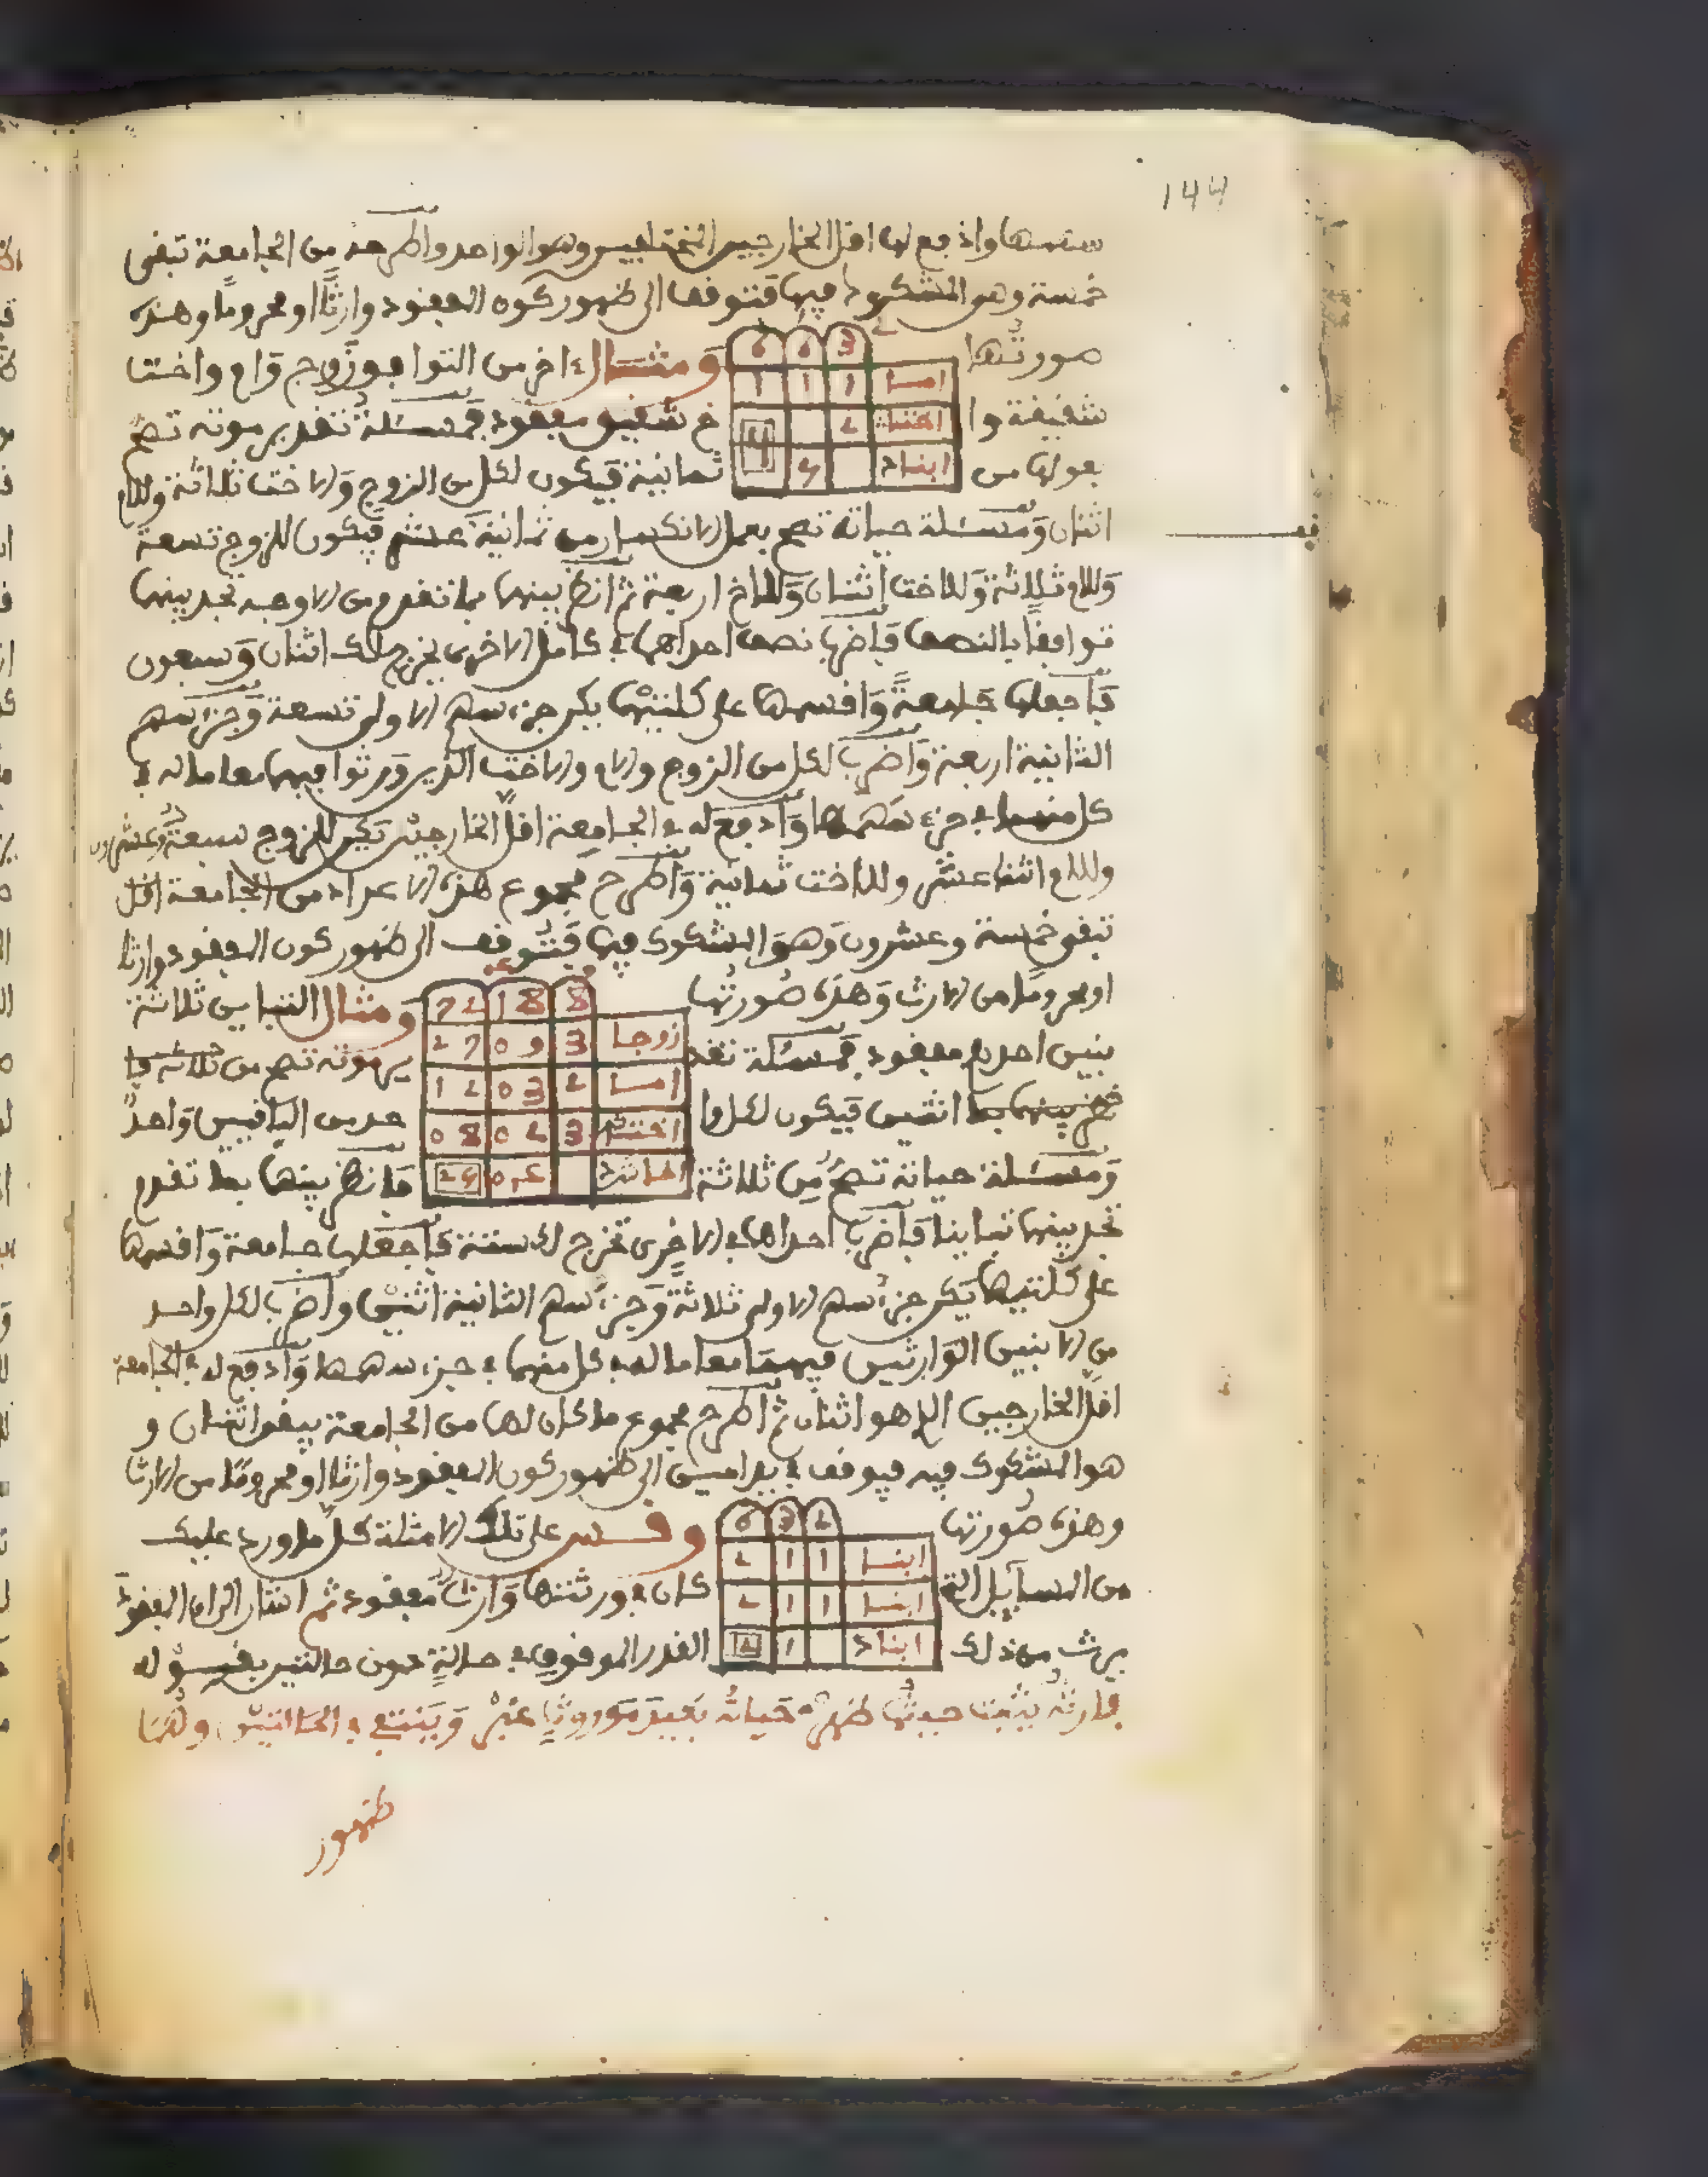 144
سهمها وادفع لها اقل الخارجين المختلفين وهو الواحد واطرحه من الجامعة تبقى
خمسة وهي المشكوك فيها فتوقفها الى ظهور كون المفقود وارثا او محروما وهذه
صورتها
6 6 3
اما 1 1 1
اختا 2
ابناد 4
ومثال اخر من التوافق زوج وام واختا
شقيقة واخ شقيق مفقود فمسئلة تقدير موته تصح
بعولها من ثمانية فيكون لكل من الزوج والاخت ثلاثة وللام
اثنان ومسئلة حياته تصح بعمل الانكسار من ثمانية عشر فيكون للزوج تسعة
وللام ثلاثة وللاخت اثنان وللاخ اربعة ثم انظر بينهما بما تقدم من الاوجه تجد بينهما
توافقا بالنصف فاضرب نصف احداهما في كامل الاخرى يخرج لك اثنان وسبعون
فاجعلها جامعة واقسمها على كلتيهما يكن جزء سهم الاولى تسعة وجزء سهم
الثانية اربعة واضرب لكل من الزوج والام والاخت الذين ورثوا فيهما معا ما له في
كل منهما في جزء سهمها وادفع له في الجامعة اقل الخارجين تكن للزوج سبعة وعشرون
وللام اثنا عشر وللاخت ثمانية واطرح مجموع هذه الاعداد من الجامعة
تبقى خمسة وعشرون وهو المشكوك فيها فتوقف الى ظهور كون المفقود وارثا
او محروما من الارث وهذه صورتها
72 18 8
زوجا 3 09 27
اما 2 03 12
اختا 3 02 08
ومثال التباين ثلاثة
بنين احدهم مفقود فمسئلة تقد
ير موته تصح من
اثنين فيكون لكل وا
حد من الباقيين واحد
ومسئلة حياته تصح من ثلاثة فانظر بينهما بما تقدم
تجد بينهما تباينا فاضرب احداهما في الاخرى تخرج لك ستة فاجعلها جامعة واقسمها
على كلتيهما يكن جزء سهم الاولى ثلاثة وجزء سهم الثانية اثنين واضرب لكل واحد
من الابنين الوارثين فيهما معا ما له في كل منهما في جزء سهمها وادفع له في الجامعة
اقل الخارجين الذ هو اثنان ثم اطرح مجموع ما كان لهما من الجامعة يبقى اثنان و
هو المشكوك فيه فيوقف الى ظهور كون المفقود وارثا او محروما من الارث
وهذه صورتها
6 3 2
ابنا 1 1 2
ابنا 1 1 2
ابناد 1 2
وقس على تلك الامثلة كل ما ورد عليك
من المسايل التي كان في ورثتها وارث مفقود ثم اشار الى ان المفقود
يرث من ذلك القدر الموقوف في حالة دون حالتين بقوله
فارثه يثبت حيث ظهرت حياته بعيد موروث عبر وينتفي في الحالتين وهما
ظهور